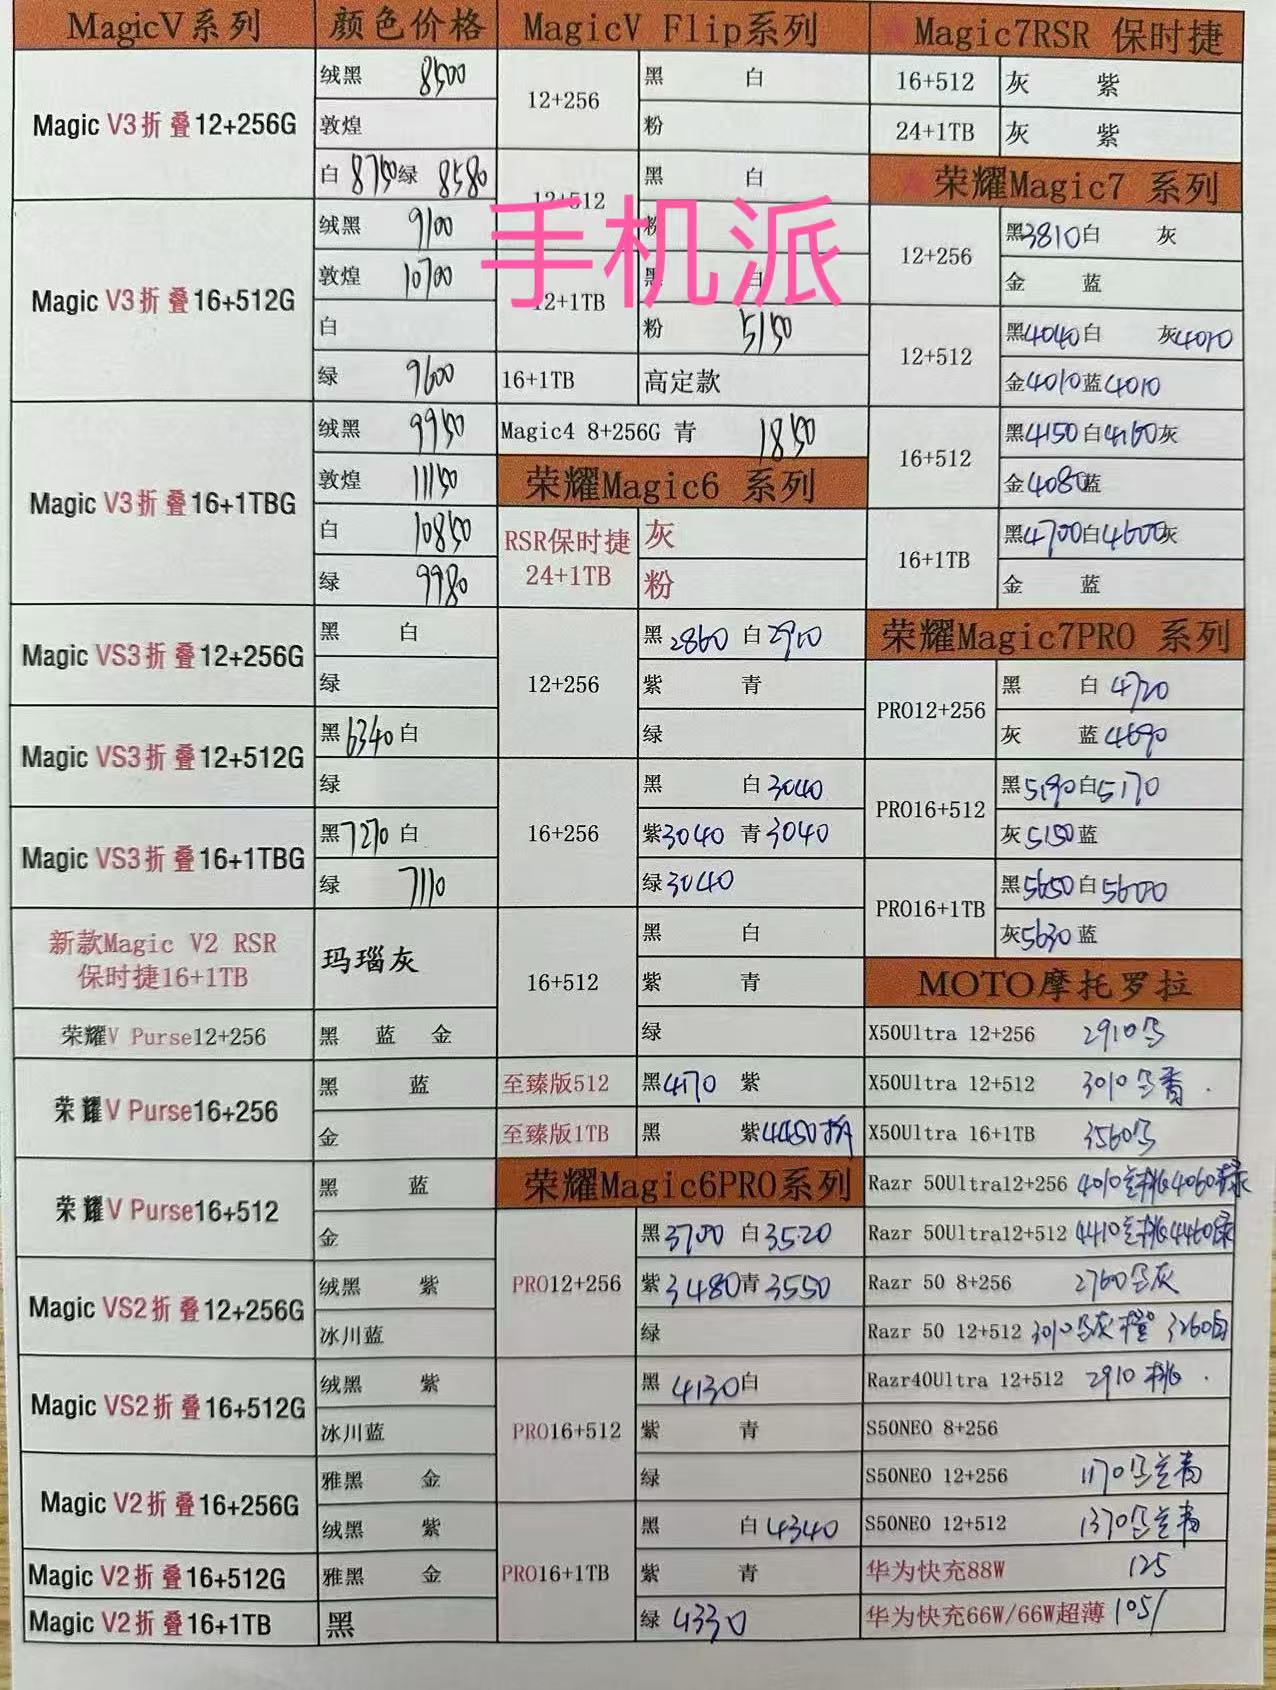 MagicV系列 颜色价格
Magic V3折叠12+256G 绒黑 8500
敦煌
白 8750 绿 8580
Magic V3折叠16+512G 绒黑 9100
敦煌 10700
白
绿 9600
Magic V3折叠16+1TBG 绒黑 9950
敦煌 11150
白 10850
绿 9980
Magic VS3折叠12+256G 黑 白
绿
Magic VS3折叠12+512G 黑6340白
绿
Magic VS3折叠16+1TBG 黑7270白
绿 7110
新款Magic V2 RSR
保时捷16+1TB 玛瑙灰
荣耀V Purse12+256 黑 蓝 金
荣耀V Purse16+256 黑 蓝
金
荣耀V Purse16+512 黑 蓝
金
Magic VS2折叠12+256G 绒黑 紫
冰川蓝
Magic VS2折叠16+512G 绒黑 紫
冰川蓝
Magic V2折叠16+256G 雅黑 金
绒黑 紫
Magic V2折叠16+512G 雅黑 金
Magic V2折叠16+1TB 黑
MagicV Flip系列
12+256 黑 白
粉
12+512 黑 白
粉
手机派
12+1TB 黑 白
粉 5150
16+1TB 高定款
Magic4 8+256G 青 1850
荣耀Magic6 系列
RSR保时捷
24+1TB 灰
粉
12+256 黑2860 白2910
紫 青
绿
16+256 黑 白3040
紫3040 青3040
绿3040
16+512 黑 白
紫 青
绿
至臻版512 黑4170 紫
至臻版1TB 黑 紫4450拆
荣耀Magic6PRO系列
PRO12+256 黑3700 白3520
紫3480青3550
绿
PRO16+512 黑 4130白
紫 青
绿
PRO16+1TB 黑 白4340
紫 青
绿 4330
Magic7RSR 保时捷
16+512 灰 紫
24+1TB 灰 紫
荣耀Magic7 系列
12+256 黑3810白 灰
金 蓝
12+512 黑4040白 灰4010
金4010蓝4010
16+512 黑4150白4160灰
金4080蓝
16+1TB 黑4700白4600灰
金 蓝
荣耀Magic7PRO 系列
PRO12+256 黑 白4720
灰 蓝4690
PRO16+512 黑5190白5170
灰5150蓝
PRO16+1TB 黑5650白5600
灰5630蓝
MOTO摩托罗拉
X50Ultra 12+256 2910
X50Ultra 12+512 3010
X50Ultra 16+1TB 3560
Razr 50Ultra12+256 4010 桃4060绿
Razr 50Ultra12+512 4410 桃4460绿
Razr 50 8+256 2760 灰
Razr 50 12+512 3010 灰橙 3260白
Razr40Ultra 12+512 2910 桃
S50NEO 8+256
S50NEO 12+256 1170
S50NEO 12+512 1370
华为快充88W 125
华为快充66W/66W超薄 105